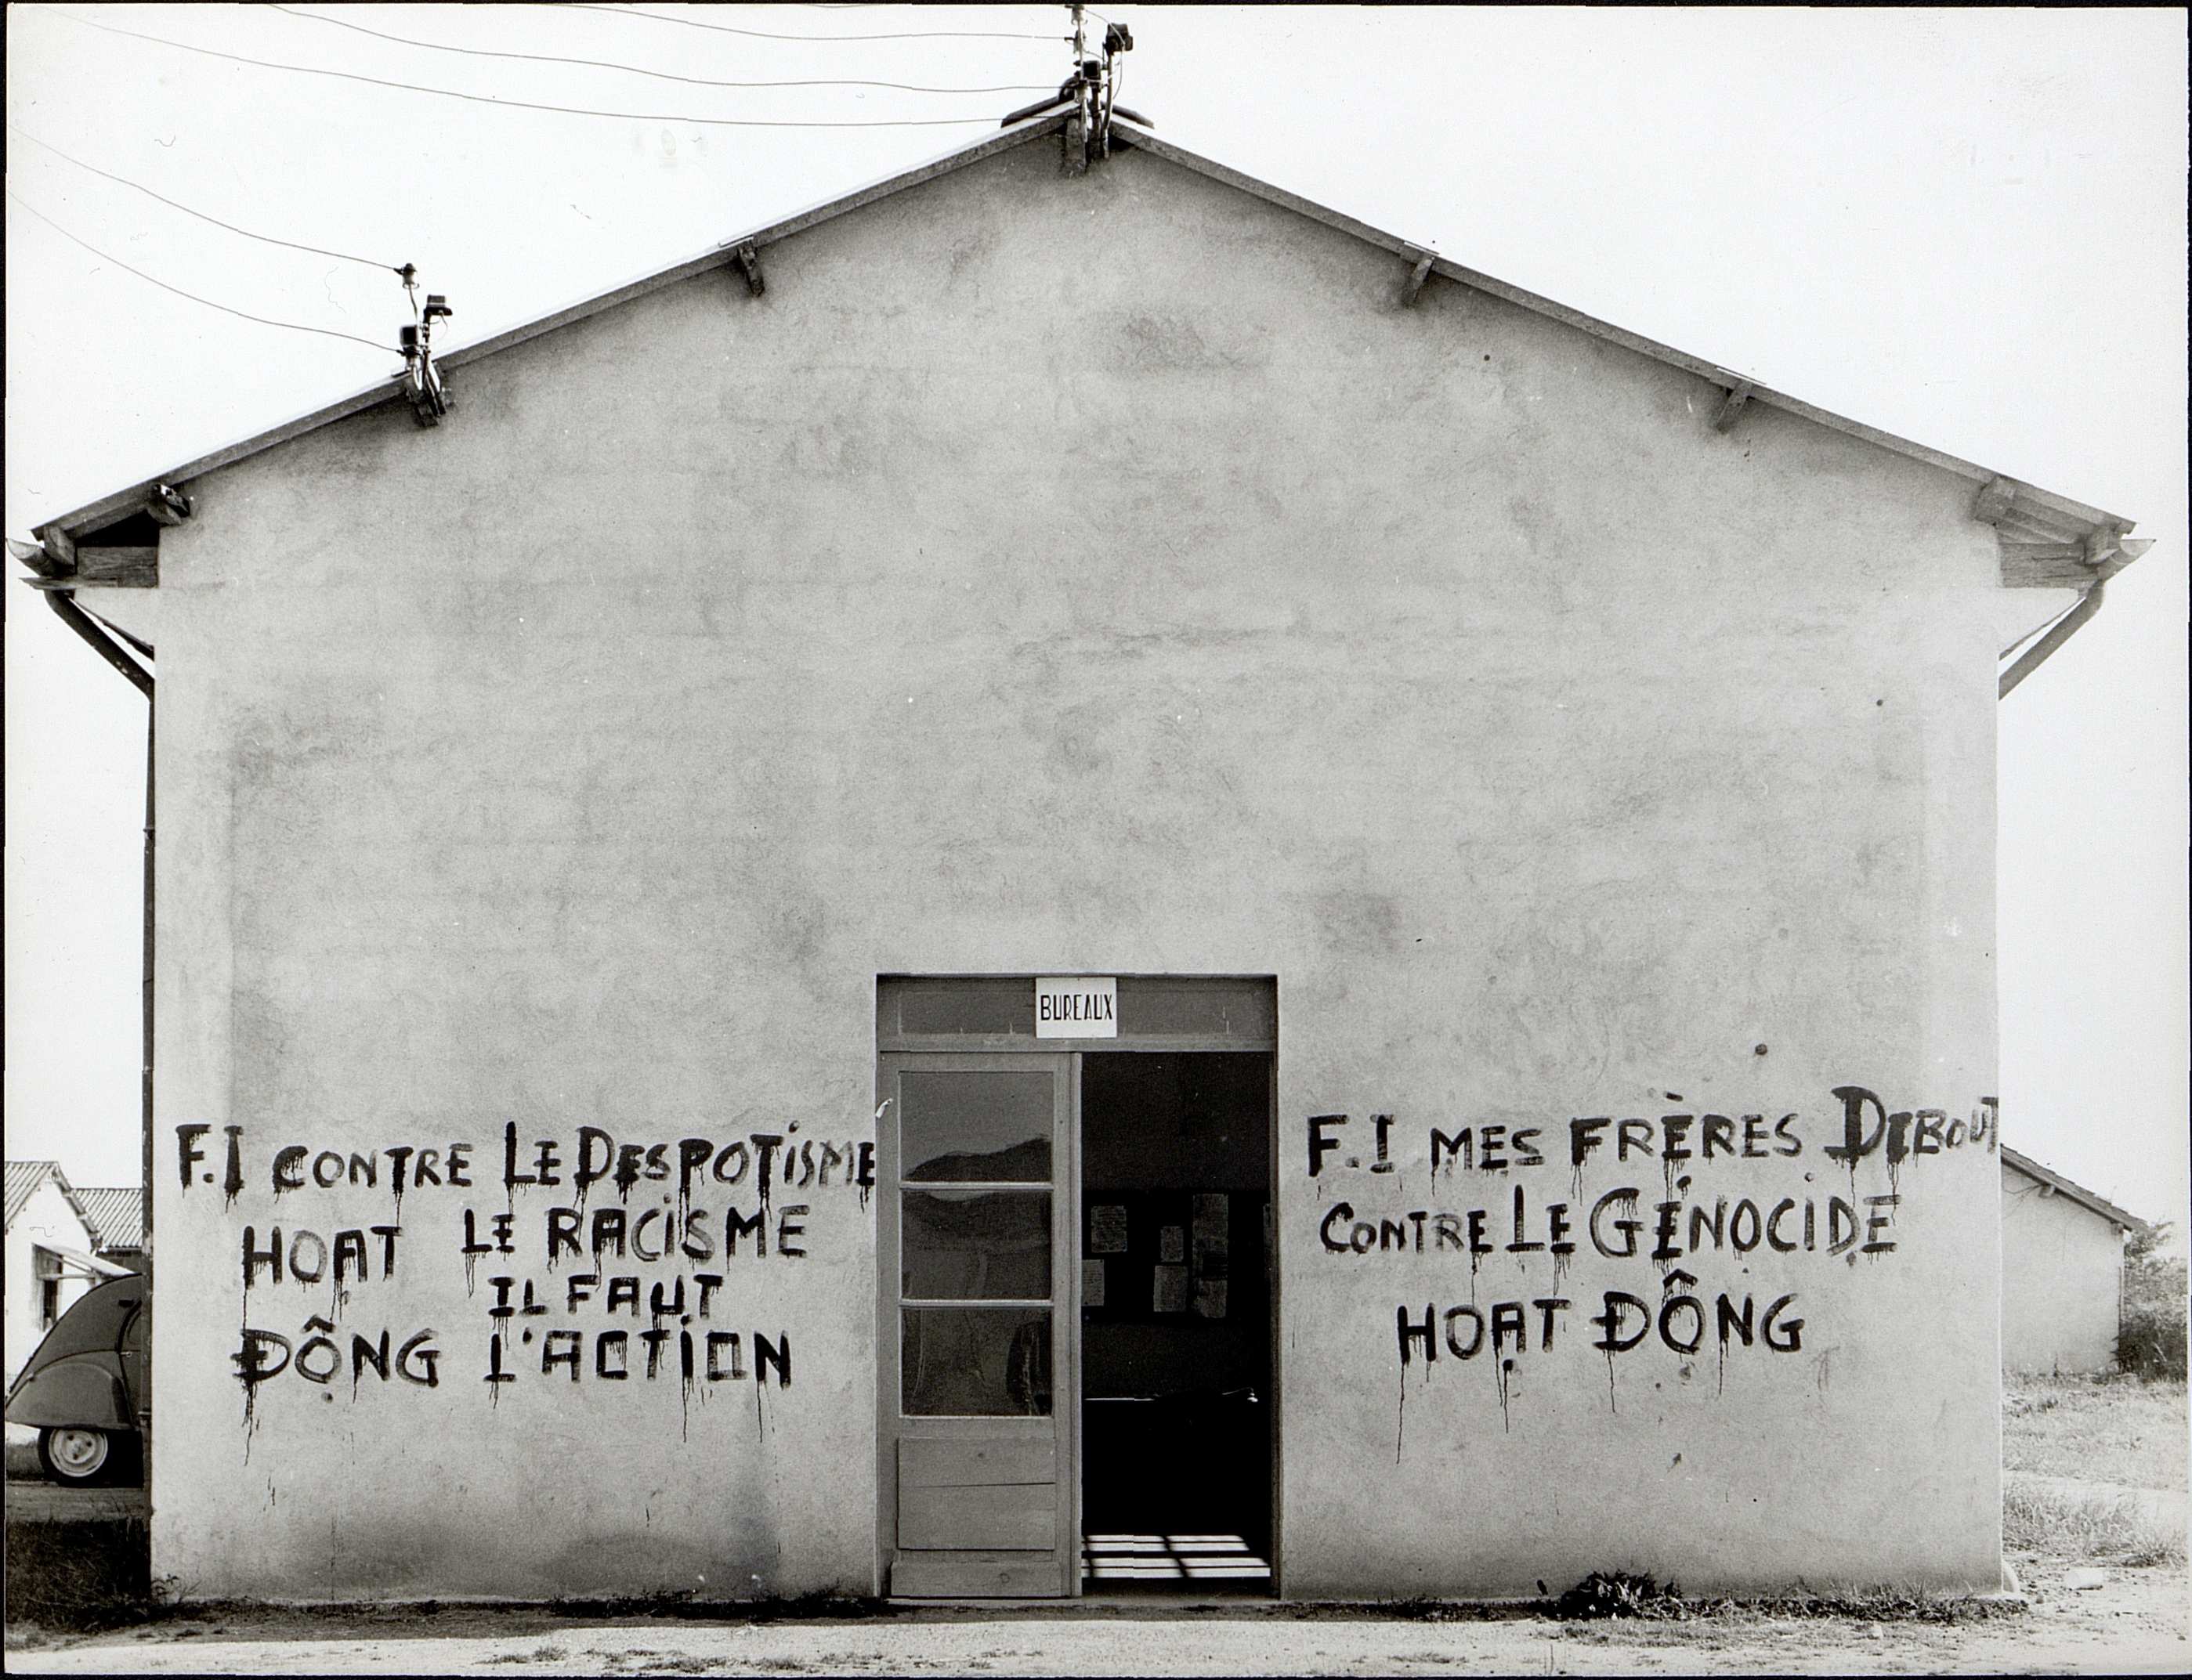 BUREAUX
F.I CONTRE LE DESPOTISME
HOẠT LE RACISME
IL FAUT
ĐỘNG L'ACTION
F.I MES FRÈRES DEBOUT
CONTRE LE GÉNOCIDE
HOẠT ĐỘNG